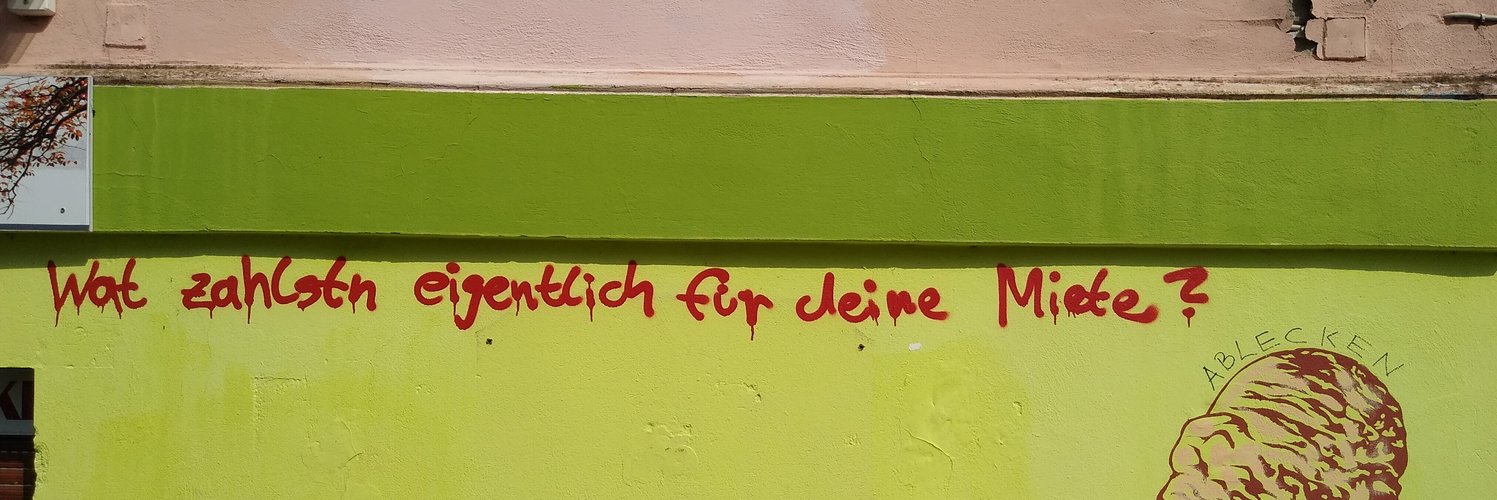 Wat zahlstn eigentlich für deine Miete?
ABLECKEN